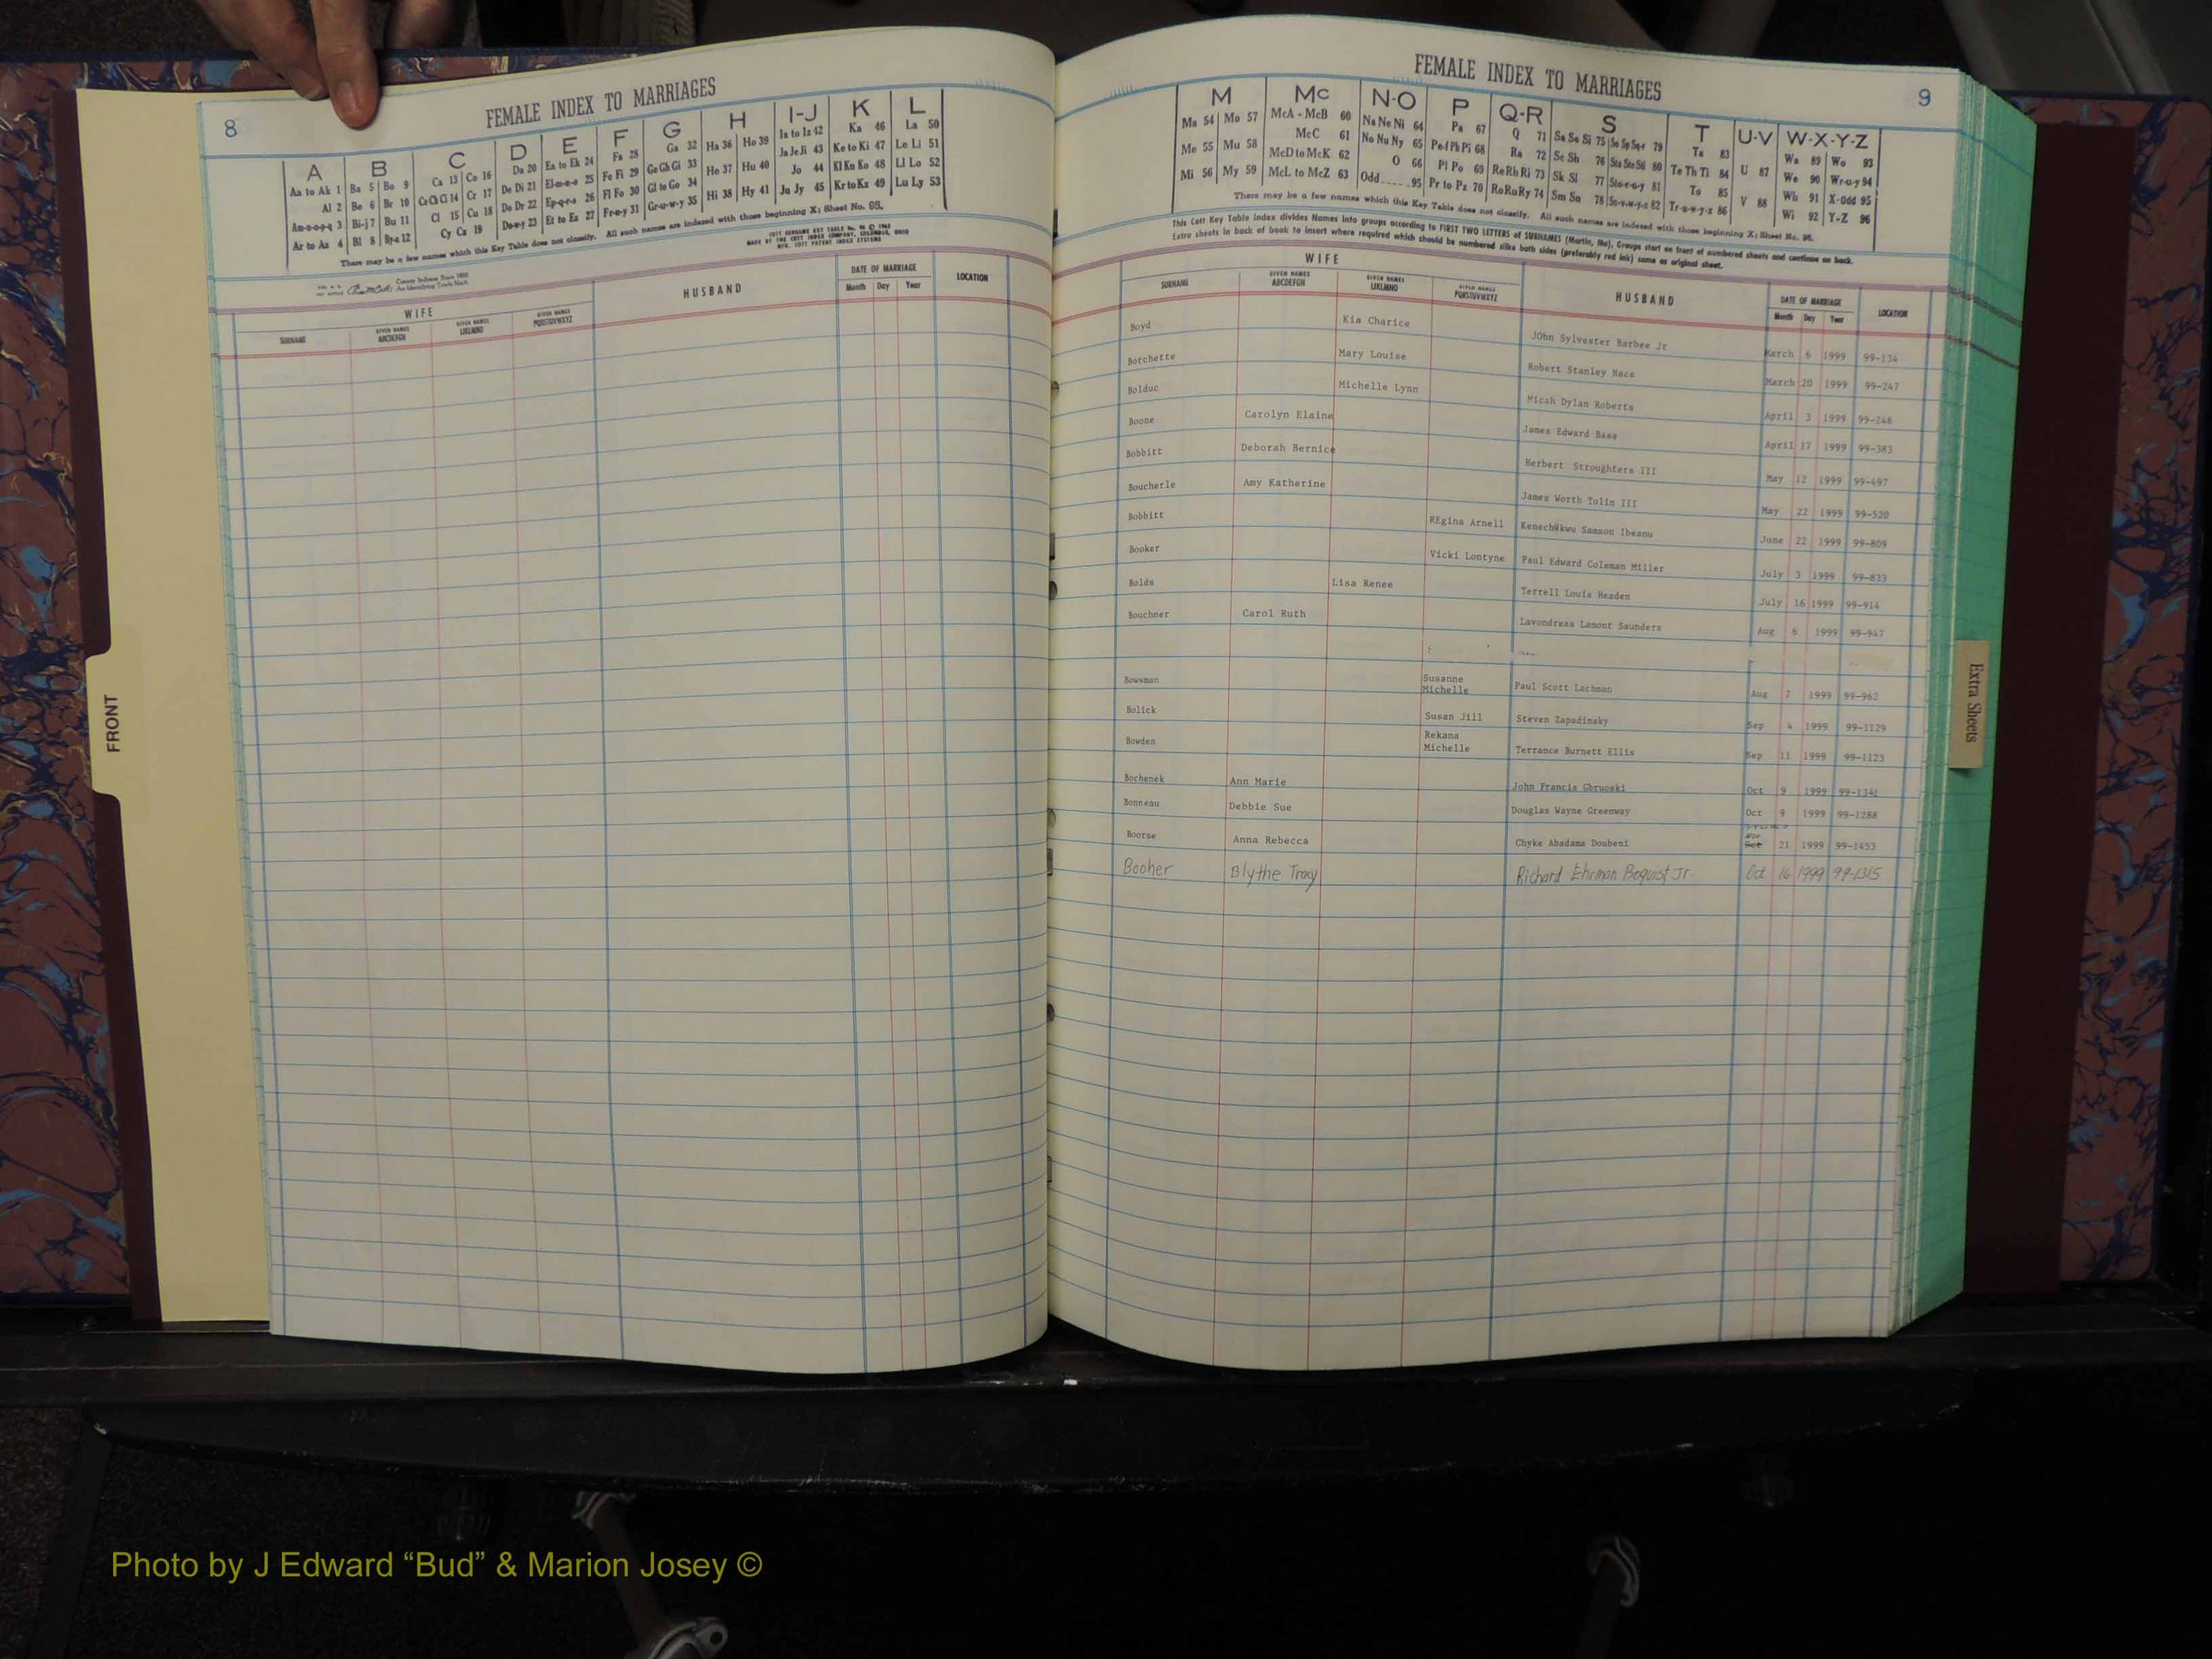 8
FEMALE INDEX TO MARRIAGES
A B C D E F G H I-J K L
Aa to Ak 1 Ba 5 Bo 9 Ca 13 Co 16 Da 20 Ea to Ek 24 Fa 28 Ga 32 Ha 36 Ho 39 Ia to Iz 42 Ka 46 La 50
Al 2 Be 6 Br 10 Ce Ch Ci 14 Cr 17 De Di 21 El-m-n-o 25 Fe Fi 29 Ge Gh Gi 33 He 37 Hu 40 Ja Je Ji 43 Ke to Ki 47 Le Li 51
Am-n-o-p-q 3 Bi-j 7 Bu 11 Cl 15 Cu 18 Do Dr 22 Ep-q-r-s 26 Fl Fo 30 Gl to Go 34 Hi 38 Hy 41 Jo 44 Kl Kn Ko 48 Ll Lo 52
Ar to Az 4 Bl 8 By-z 12 Cy Cz 19 Du-w-y 23 Et to Ez 27 Fr-u-y 31 Gr-u-w-y 35 Ju Jy 45 Kr to Kz 49 Lu Ly 53
There may be a few names which this Key Table does not classify. All such names are indexed with those beginning X; Sheet No. 95.
WIFE HUSBAND DATE OF MARRIAGE LOCATION
SURNAME GIVEN NAMES ABCDEFGH GIVEN NAMES IJKLMNO GIVEN NAMES PQRSTUVWXYZ Month Day Year
FEMALE INDEX TO MARRIAGES
9
M Mc N-O P Q-R S T U-V W-X-Y-Z
Ma 54 Mo 57 McA - McB 60 Na Ne Ni 64 Pa 67 Q 71 Sa Se Si 75 So Sp Sq-r 79 Ta 83 Wa 89 Wo 93
Me 55 Mu 58 McC 61 No Nu Ny 65 Pe Pf Ph Pi 68 Ra 72 Sc Sh 76 Sta Ste Sti 80 Te Th Ti 84 U 87 We 90 Wr-u-y 94
Mi 56 My 59 McD to McK 62 O 66 Pl Po 69 Re Rh Ri 73 Sk Sl 77 Sto-r-u-y 81 To 85 Wh 91 X-Odd 95
McL to McZ 63 Odd 95 Pr to Pz 70 Ro Ru Ry 74 Sm Sn 78 Su-v-w-y-z 82 Tr-u-w-y-z 86 V 88 Wi 92 Y-Z 96
There may be a few names which this Key Table does not classify. All such names are indexed with those beginning X; Sheet No. 95.
This Cott Key Table Index divides Names into groups according to FIRST TWO LETTERS of SURNAMES (Martin, Ma). Groups start on front of numbered sheets and continue on back.
Extra sheets in back of book to insert where required which should be numbered alike both sides (preferably red ink) same as original sheet.
WIFE HUSBAND DATE OF MARRIAGE LOCATION
SURNAME GIVEN NAMES ABCDEFGH GIVEN NAMES IJKLMNO GIVEN NAMES PQRSTUVWXYZ Month Day Year
Boyd Kia Charice JOhn Sylvester Barbee Jr March 6 1999 99-134
Borchette Mary Louise Robert Stanley Nace March 20 1999 99-247
Bolduc Michelle Lynn Micah Dylan Roberts April 3 1999 99-248
Boone Carolyn Elaine James Edward Bass April 17 1999 99-383
Bobbitt Deborah Bernice Herbert Stroughters III May 12 1999 99-497
Boucherle Amy Katherine James Worth Tolin III May 22 1999 99-520
Bobbitt REgina Arnell Samson Ibeanu June 22 1999 99-809
Booker Vicki Lontyne Paul Edward Coleman Miller July 3 1999 99-833
Bolds Lisa Renee Terrell Louis Headen July 16 1999 99-914
Bouchner Carol Ruth Lavondreas Lamont Saunders Aug 6 1999 99-947
Bowsman Susanne Michelle Paul Scott Lachman Aug 7 1999 99-962
Bolick Susan Jill Steven Zapadinsky Sep 4 1999 99-1129
Bowden Rekana Michelle Terrance Burnett Ellis Sep 11 1999 99-1123
Bochenek Ann Marie John Francis Gbruoski Oct 9 1999 99-1341
Bonneau Debbie Sue Douglas Wayne Greenway Oct 9 1999 99-1288
Boorse Anna Rebecca Chyke Abadama Doubeni Nov Oct 21 1999 99-1453
Booher Blythe Tracy Richard Ehrman Boquist Jr Oct 16 1999 99-1315
FRONT
Extra Sheets
Photo by J Edward “Bud” & Marion Josey ©